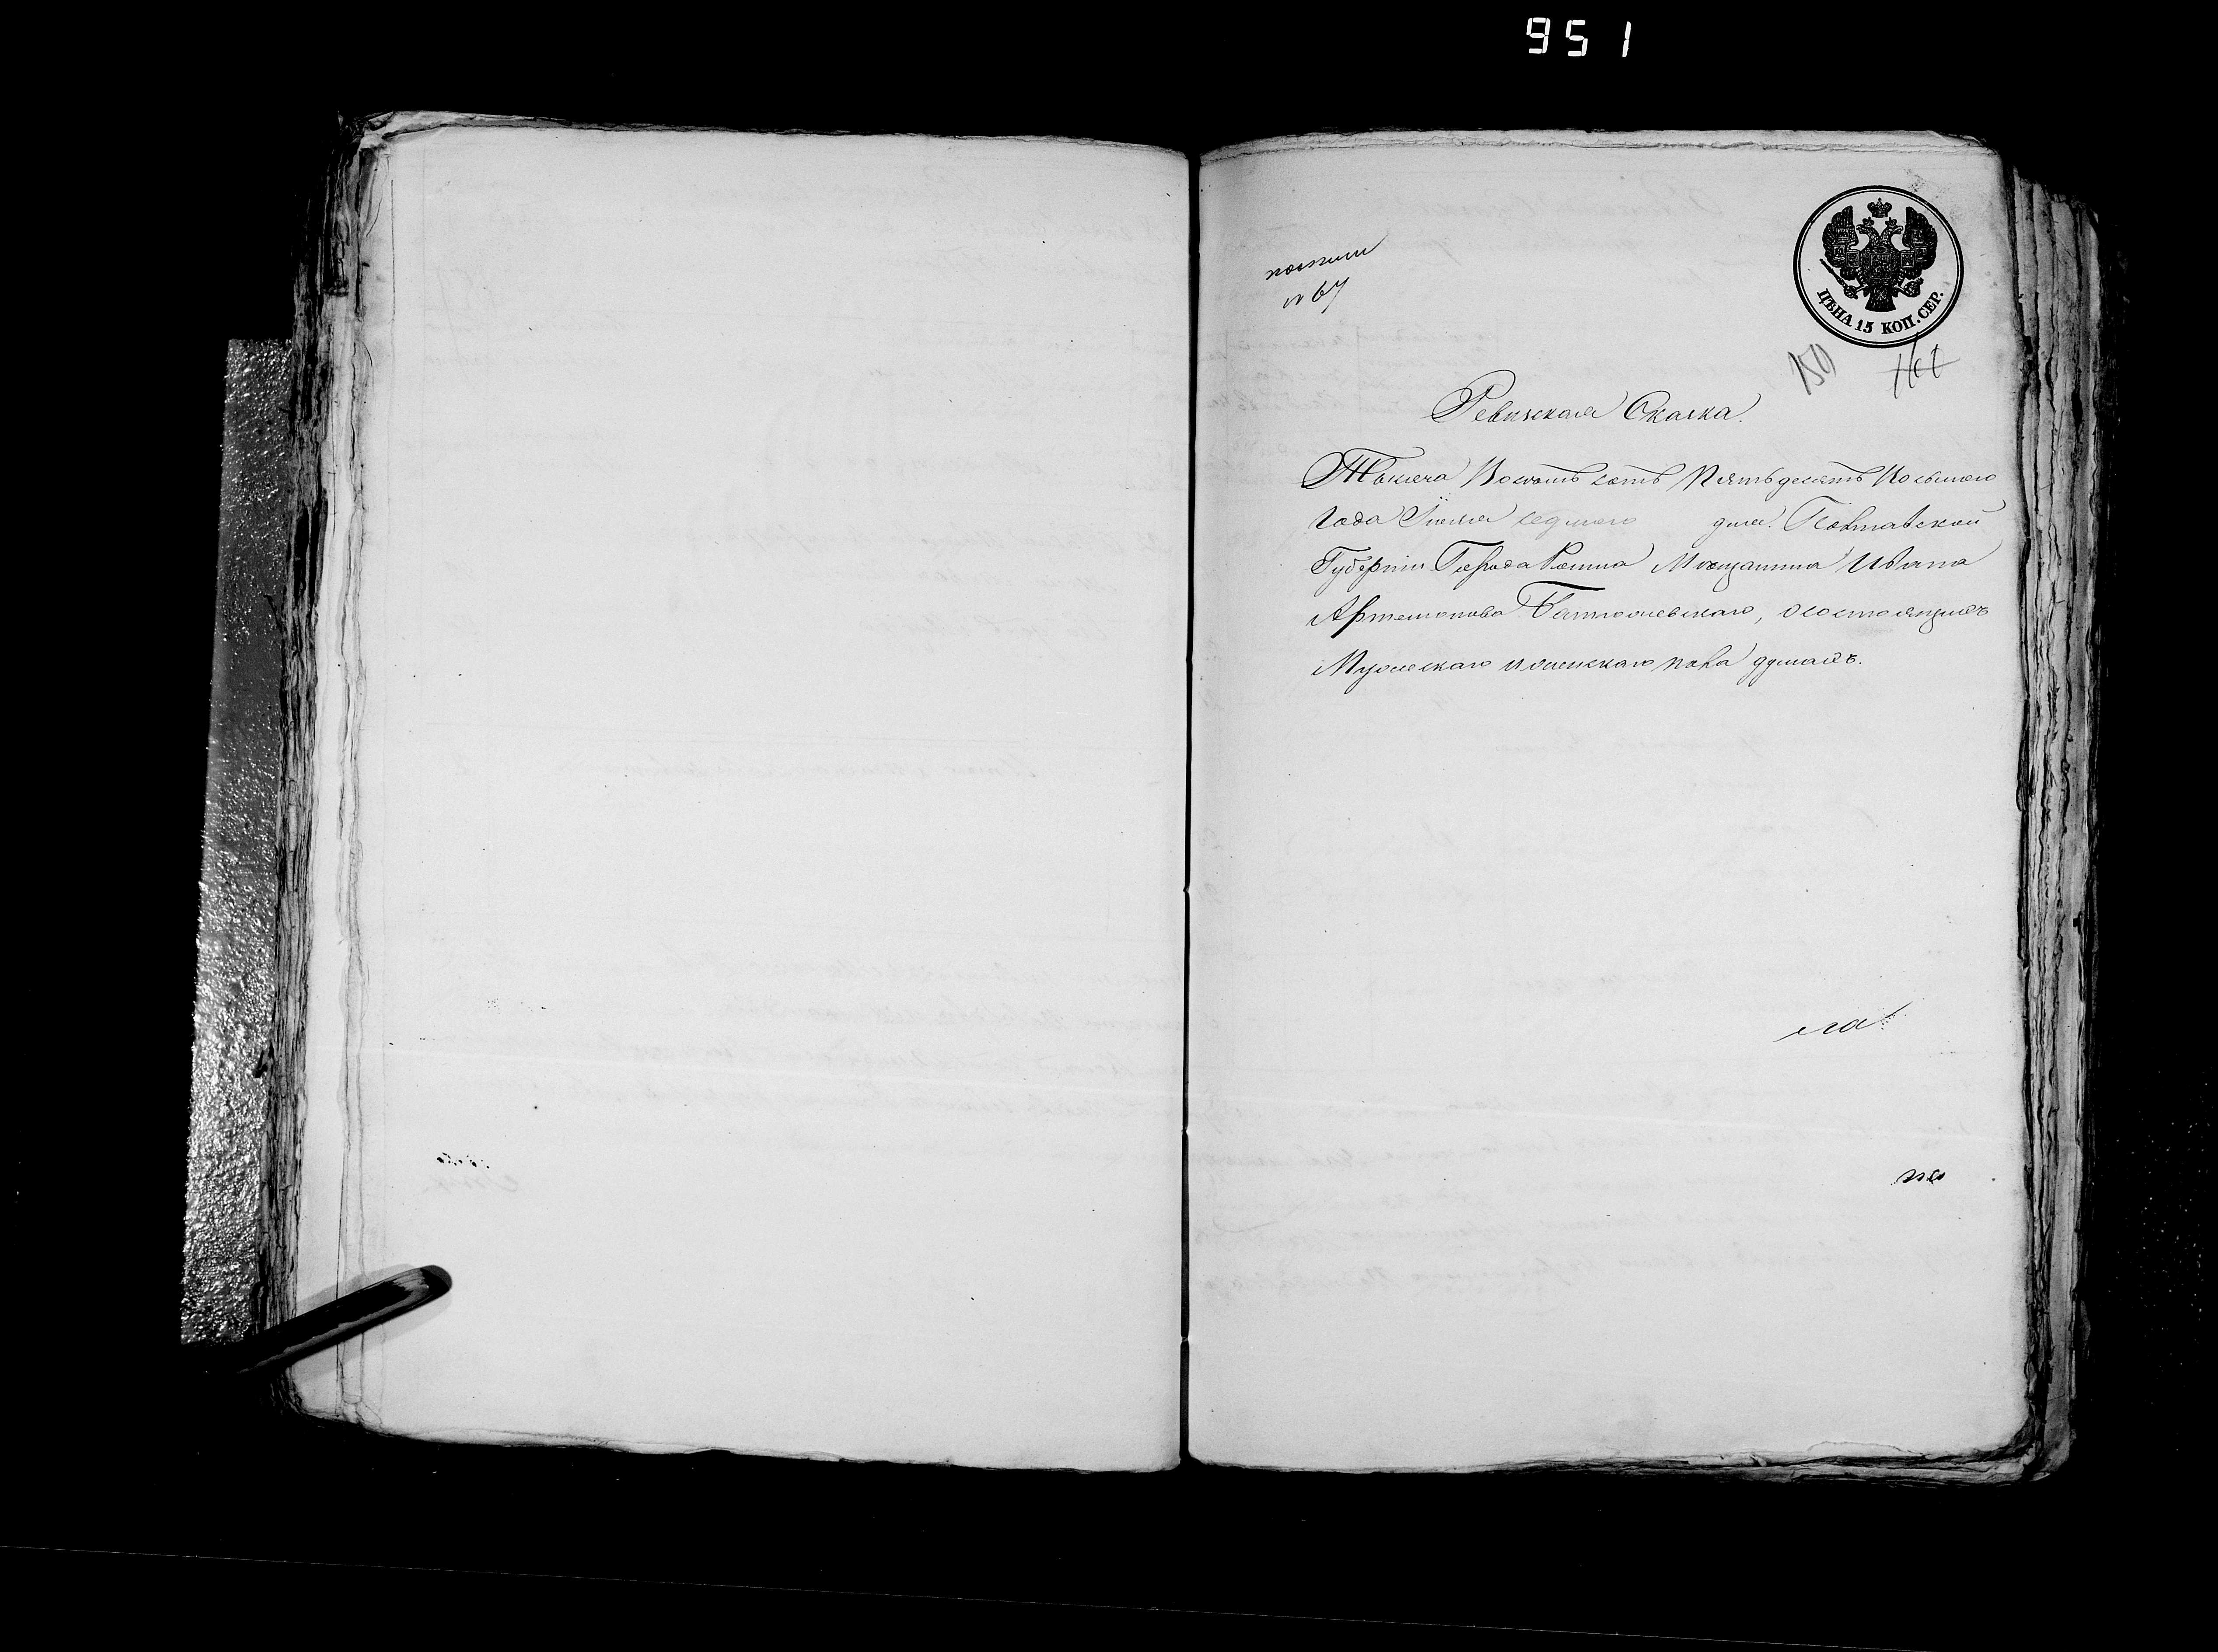 951
№ 67
ЦѢНА 15 КОП. СЕР.
159
Ревизская Сказка.
Тысяча Восемь сотъ Пятьдесятъ Восьмого
Года Іюня седмого дня. Полтавской
Губерніи Города Ромна Мѣщанина Ивана
Артемонова о состоящихъ
Мужескаго и женскаго пола душахъ.